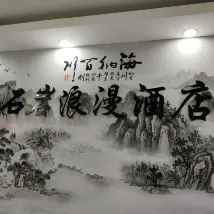 海纳百川
石岩浪漫酒店